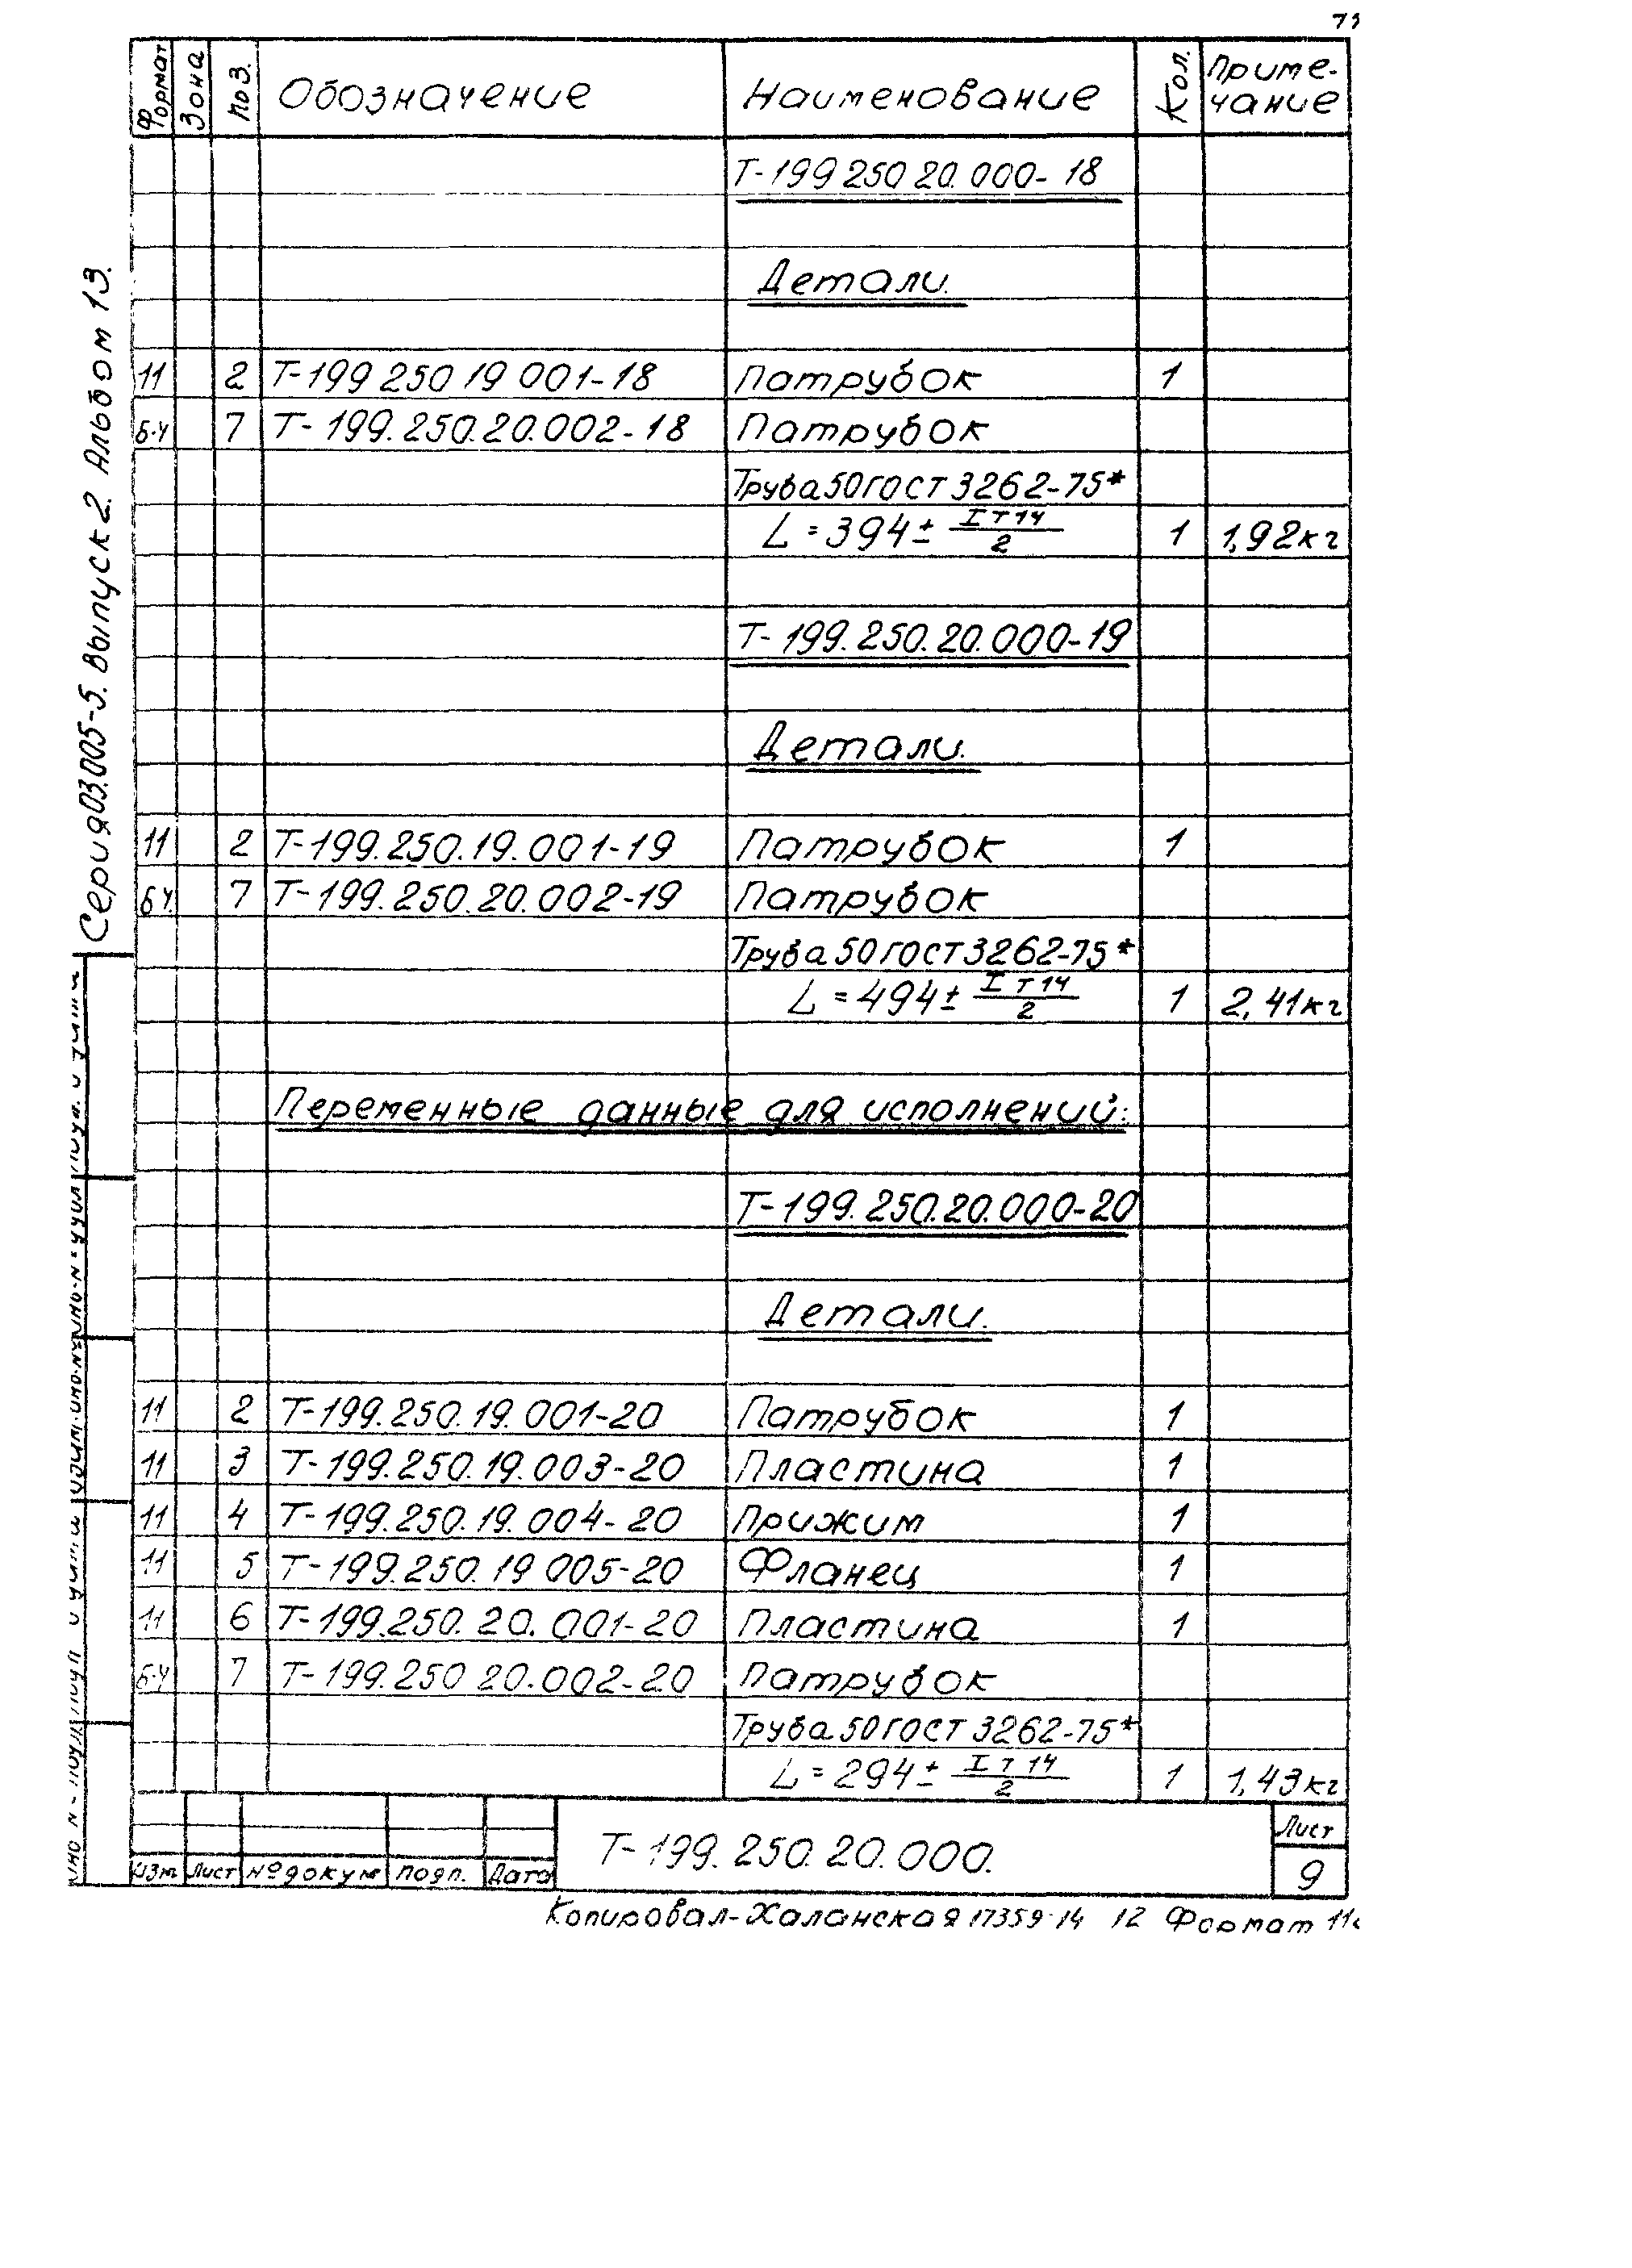 Формат Зона Поз. Обозначение Наименование Кол. Приме-
чание
Т-199 250 20.000-18
Детали.
11 2 Т-199 250 19 001-18 Патрубок 1
б.ч 7 Т-199.250.20.002-18 Патрубок
Труба 50 ГОСТ 3262-75*
L=394± IT14/2 1 1,92кг
Т-199.250.20.000-19
Детали.
11 2 Т-199.250.19.001-19 Патрубок 1
б ч. 7 Т-199.250.20.002-19 Патрубок
Труба 50 ГОСТ 3262-75*
L=494± IT14/2 1 2,41кг
Переменные данные для исполнений:
Т-199.250.20.000-20
Детали.
11 2 Т-199.250.19.001-20 Патрубок 1
11 3 Т-199.250.19.003-20 Пластина 1
11 4 Т-199.250.19.004-20 Прижим 1
11 5 Т-199.250.19 005-20 Фланец 1
11 6 Т-199.250.20.001-20 Пластина 1
б.ч 7 Т-199.250 20.002-20 Патрубок
Труба 50 ГОСТ 3262-75*
L=294± IT14/2 1 1,43кг
Изм. Лист №докум подп. Дата
Т-199.250.20.000.
Лист
9
Копировал-Халанская 17359-14 12 Формат 11
Серия 03.005-5. Выпуск 2. Альбом 13.